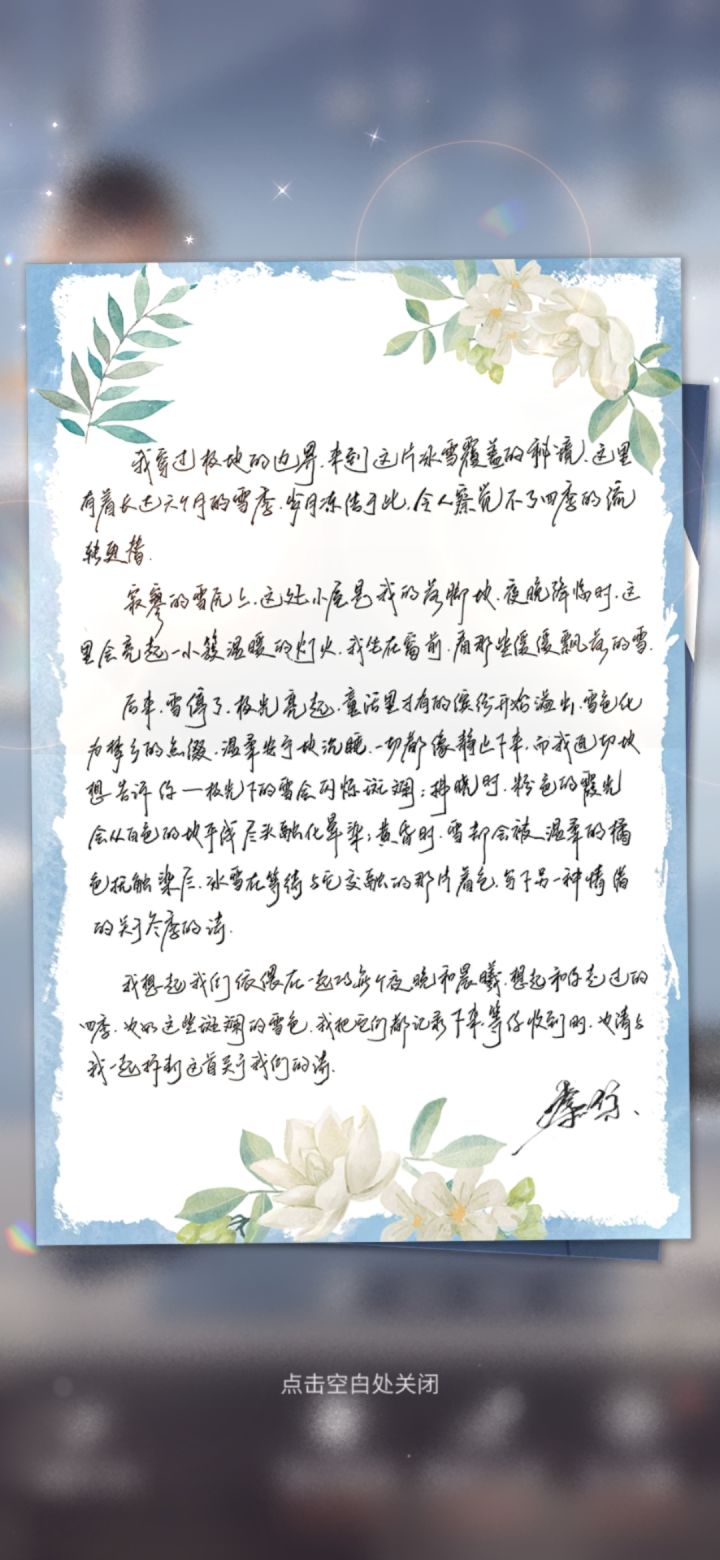 我穿过极地的边界，来到这片冰雪覆盖的秘境，这里
有着长达六个月的雪季，岁月冻结于此，令人察觉不了四季的流
转更替。
寂寥的雪原上，这处小屋是我的落脚地，夜晚降临时，这
里会亮起一小簇温暖的灯火，我坐在窗前，看那些缓缓飘落的雪。
后来，雪停了，极光亮起，童话里才有的缤纷开始溢出，雪色化
为梦乡的点缀，温柔安宁地沉睡，一切都像静止下来，而我迫切地
想告诉你——极光下的雪会闪烁斑斓；拂晓时，粉色的霞光
会从白色的地平线尽头融化晕染；黄昏时，雪却会被温柔的橘
色抚触染尽，冰雪在等待与它交融的那片着色，写下另一种情绪
的关于冬季的诗。
我想起我们依偎在一起的每个夜晚和晨曦，想起和你走过的
四季，也如这些斑斓的雪色，我把它们都记录下来，等你收到时，也请与
我一起拆封这首关于我们的诗。
点击空白处关闭